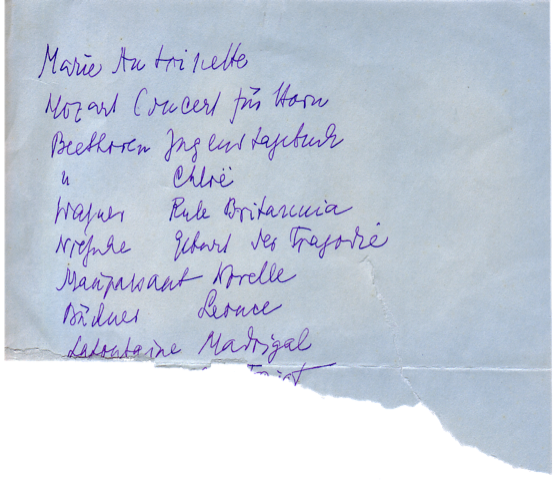 Marie Antoinette
Mozart Concert für Horn
Beethoven Jugendtagebuch
" Chloë
Wagner Rule Britannia
Nietzsche Geburt der Tragödie
Maupassant Novelle
Büchner Leonce
Lafontaine Madrigal